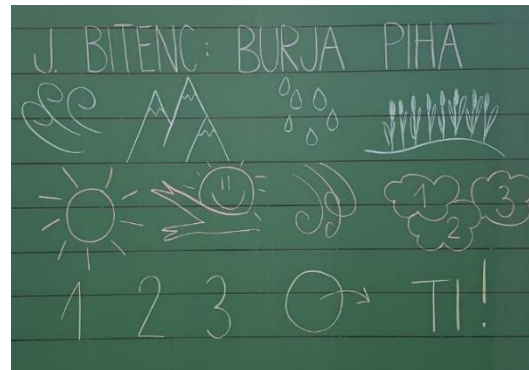 J. BITENC: BURJA PIHA
1 2 3
1 2 3 TI!